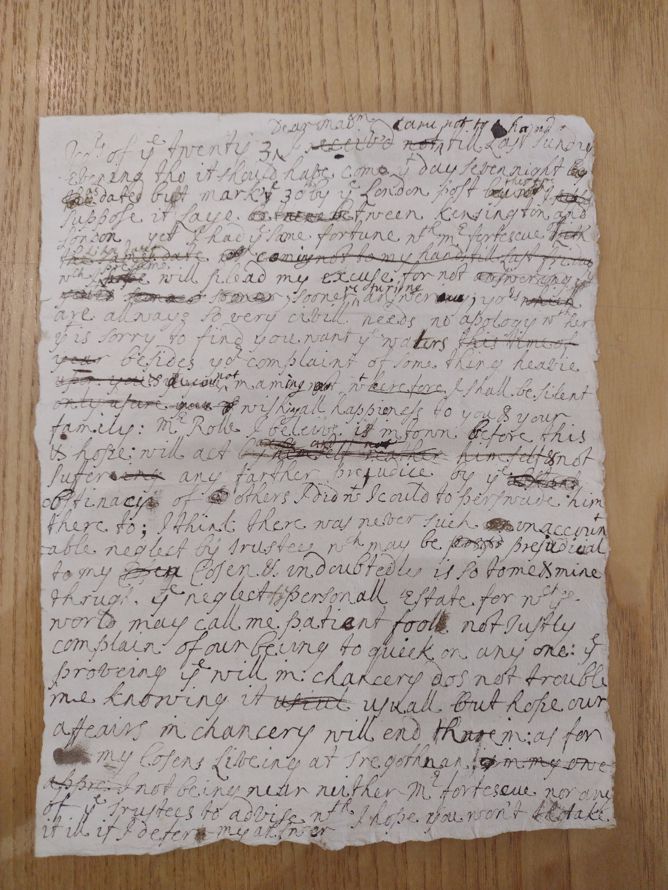 Dear mad^m
came not to hand
yo^rs of y^e twenty 3 received not till Last Sunday
evening tho it should have come y^t day sevennight
dated but mark y^e 30 by y^e London post
suppose it Laye between Kensington and
London yet I had y^e same fortune w^th m^r fortescue
the same date coming not to my hand till last
w^ch will plead my excuse for not answering y^e
sooner; sooner returning answer
are allwayz so very civill needs no apology w^th her
y^t is sorry to find you want y^e waters this time of
year besides yo^r complaint of some thing heavie
upon you not naming w^t I shall be silent
only wish all happiness to you & your
family: M^r Rolls I beleive is in town before this
& hope will act himself & not
suffer any farther prejudice by y^e
obstinacy of others I did w^t I could to perswade him
there to; I think there was never such unaccount
able neglect by trustees w^ch may be prejudicial
to my Cosen & indoubtedly is so to me & mine
through y^e neglect personall Estate for w^ch y^e
world may call me patient fool not justly
complain of our being to quick on any one: y^e
proveing y^e will in chancery dos not trouble
me knowing it usuall but hope our
affairs in chancery will end there in: as for
my Cosens Liveing at Tregothnan in my one
I not being near neither M^r fortescue nor any
of y^e Trustees to advise w^th I hope you won't take
it ill if I deferr my answer